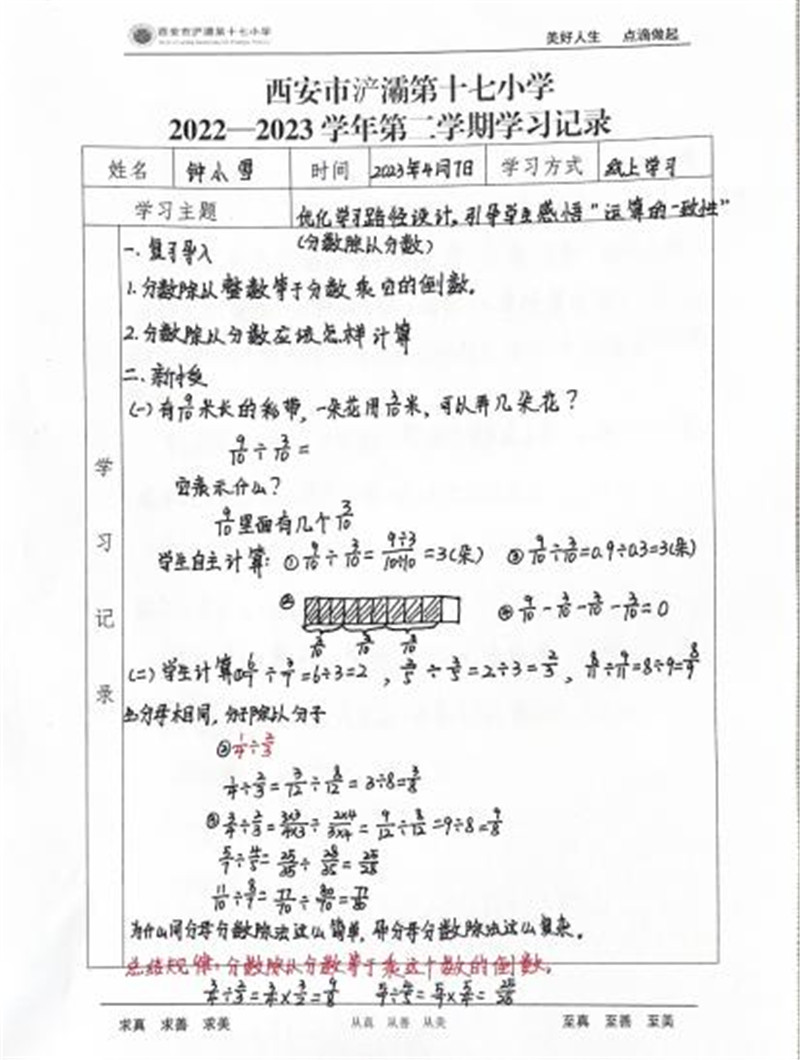 西安市浐灞第十七小学
美好人生 点滴做起
西安市浐灞第十七小学
2022—2023学年第二学期学习记录
姓名 钟小雪 时间 2023年4月7日 学习方式 线上学习
学习主题 优化学习路径设计,引导学生感悟"运算的一致性"
(分数除以分数)
学习记录
一、复习导入
1.分数除以整数等于分数乘它的倒数。
2.分数除以分数应该怎样计算
二、新授
(一)有9/10米长的彩带,一朵花用3/10米,可以弄几朵花?
9/10÷3/10=
它表示什么?
9/10里面有几个3/10
学生自主计算:①9/10÷3/10=9÷3/10÷10=3(朵) ③9/10÷3/10=0.9÷0.3=3(朵)
② ④9/10-3/10-3/10-3/10=0
3/10 3/10 3/10
(二)学生计算①6/7÷3/7=6÷3=2,2/5÷3/5=2÷3=2/3,8/11÷9/11=8÷9=8/9
分母相同,分子除以分子
②1/4÷2/3
1/4÷2/3=3/12÷8/12=3÷8=3/8
③3/4÷2/3=3×3/4×3÷2×4/3×4=9/12÷8/12=9÷8=9/8
5/7÷4/5=25/35÷28/35=25/28
11/10÷8/7=77/70÷80/70=77/80
为什么同分母分数除法这么简单,异分母分数除法这么复杂。
总结规律:分数除以分数等于乘这个数的倒数。
3/4÷2/3=3/4×3/2=9/8 5/7÷4/5=5/7×5/4=25/28
求真 求善 求美 从真 从善 从美 至真 至善 至美